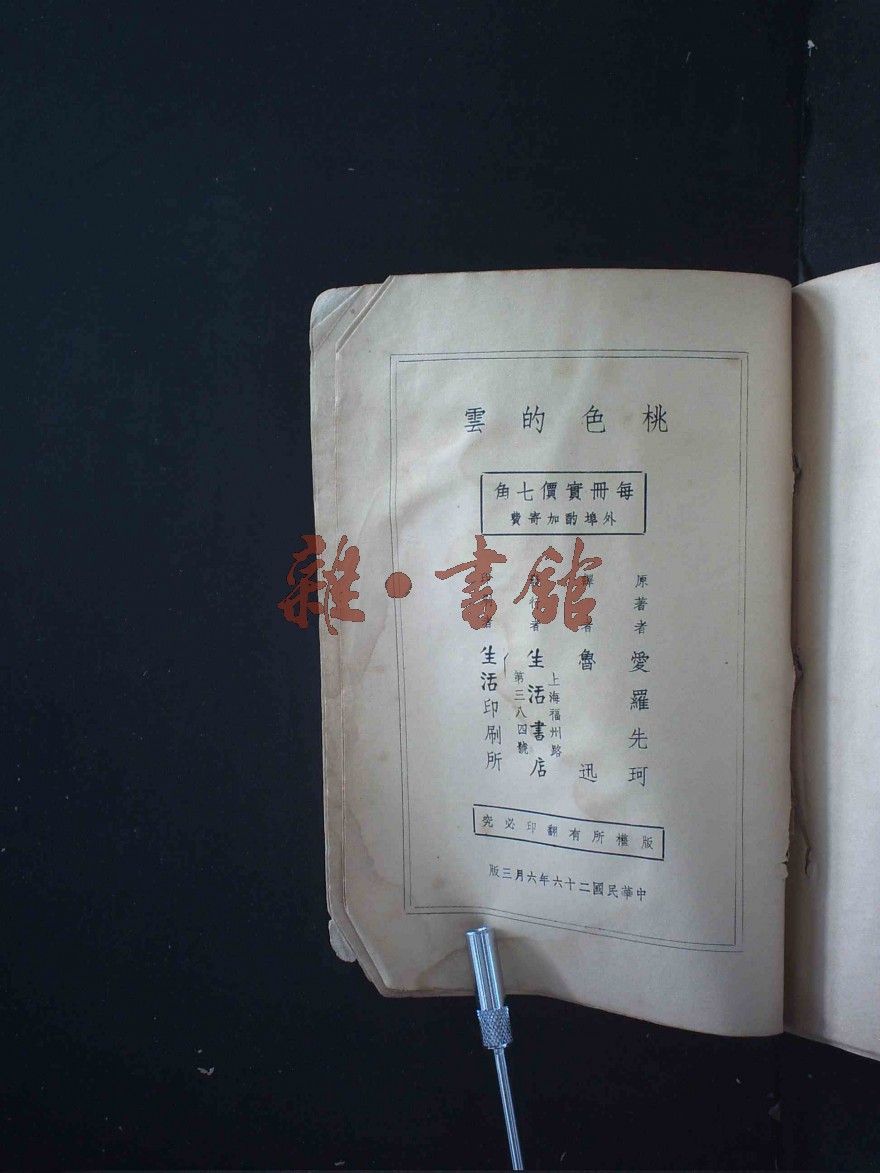 桃色的雲
每冊實價七角
外埠酌加寄費
原著者 愛羅先珂
譯著者 魯迅
發行者 生活書店
上海福州路
第三八四號
印刷者 生活印刷所
版權所有翻印必究
中華民國二十六年六月三版
雜·書館